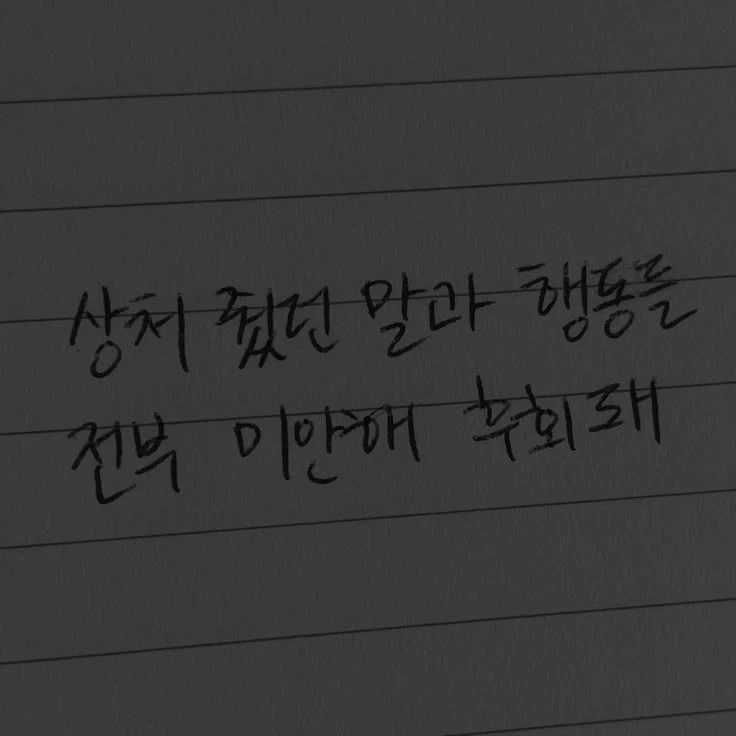 상처 줬던 말과 행동들
전부 미안해 후회돼